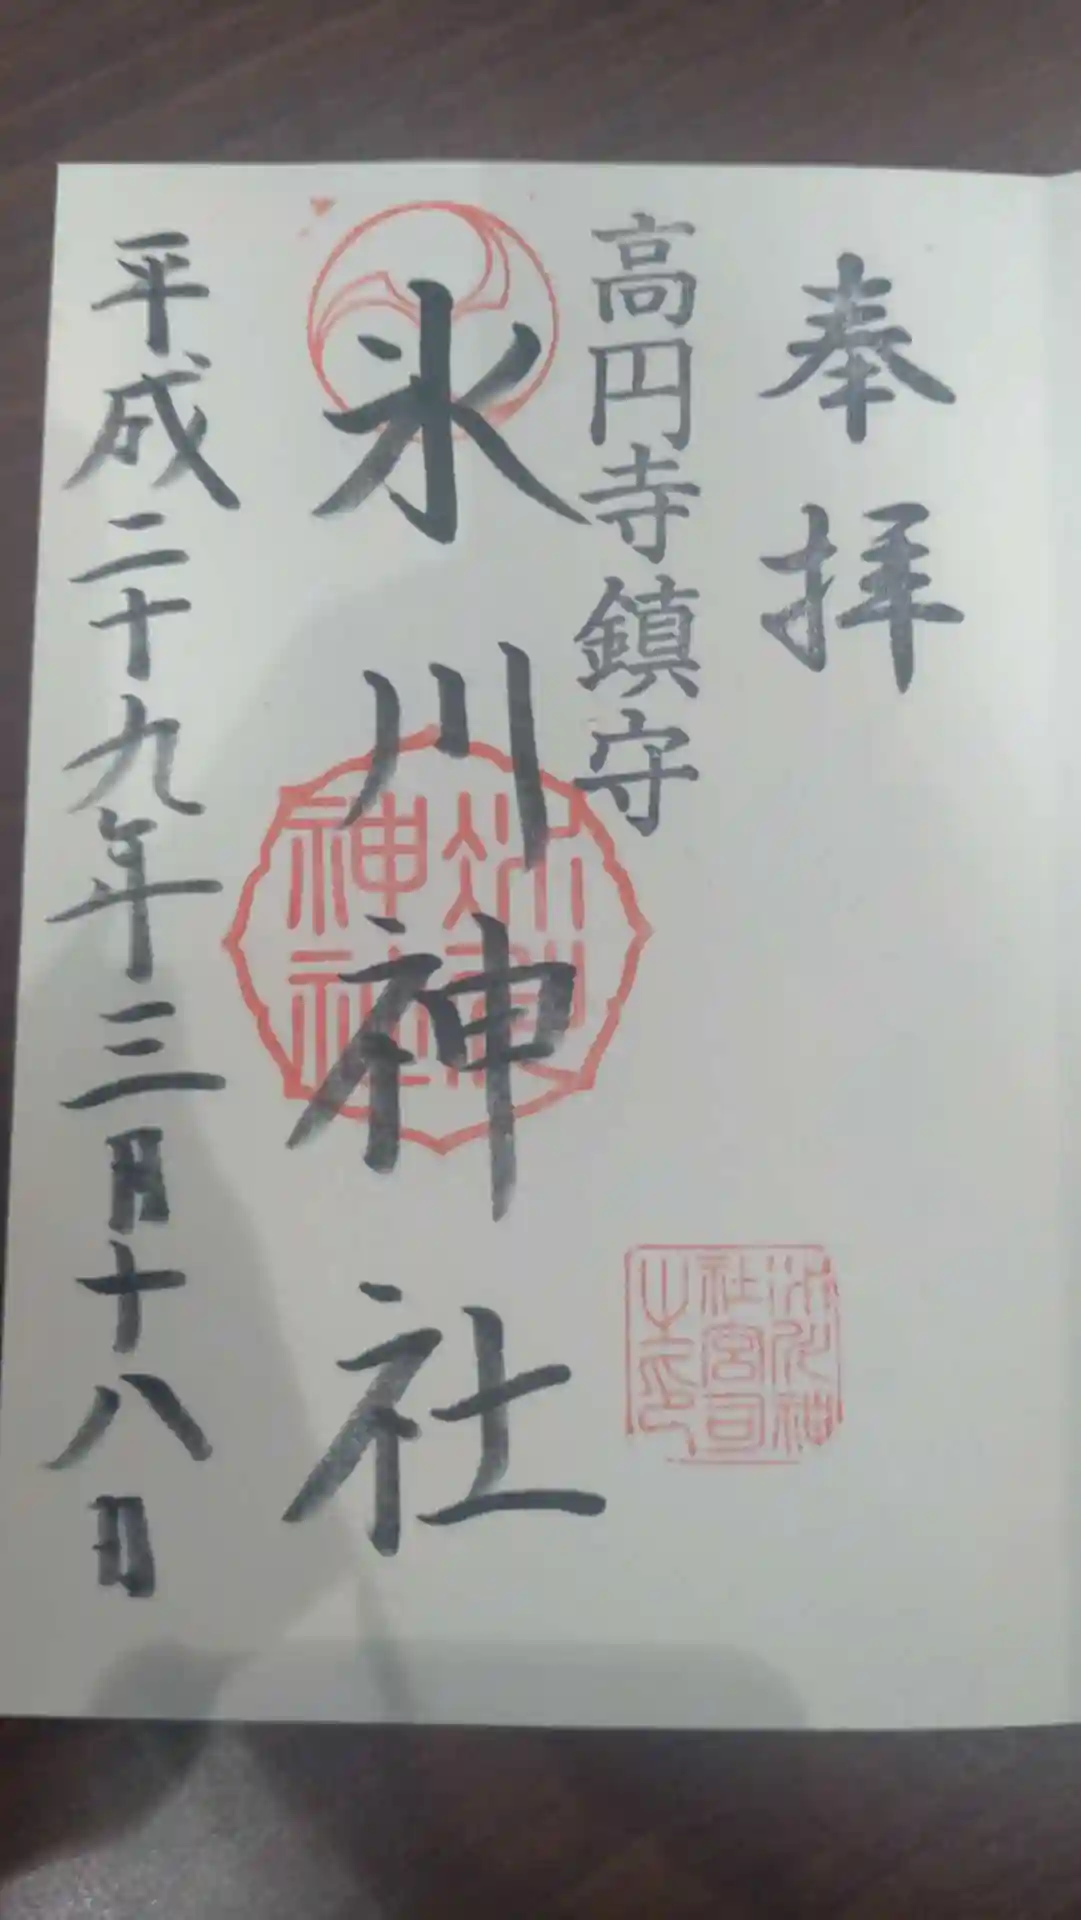 奉拝
高円寺鎮守
氷川神社
平成二十九年三月十八日
氷川神社宮司之印